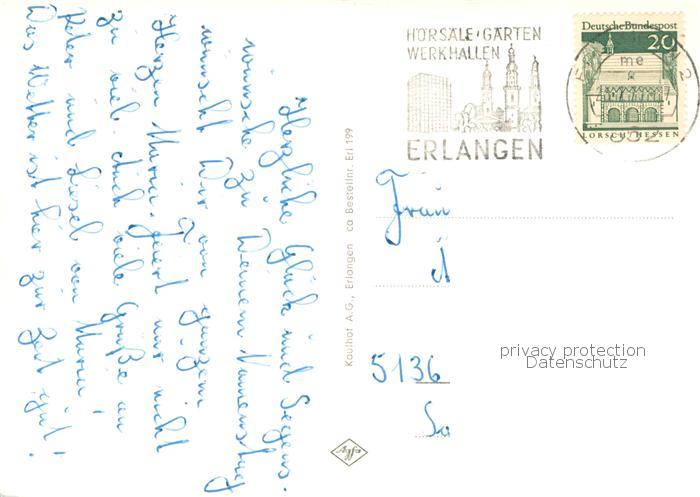 Herzliche Glück und Segens-
wünsche zu Deinem Namenstag
wünscht Dir von ganzem
Herzen Maria. Feiert nur nicht
zu viel. Auch viele Grüße an
Peter und Liesel von Maria!
Das Wetter ist hier zur Zeit gut!
Kaufhof A.G., Erlangen ca Bestellnr. Erl 199
HÖRSÄLE · GÄRTEN
WERKHALLEN
ERLANGEN
Deutsche Bundespost
20
me
852
LORSCH/HESSEN
Frau
A
5136
privacy protection
Datenschutz
Agfa